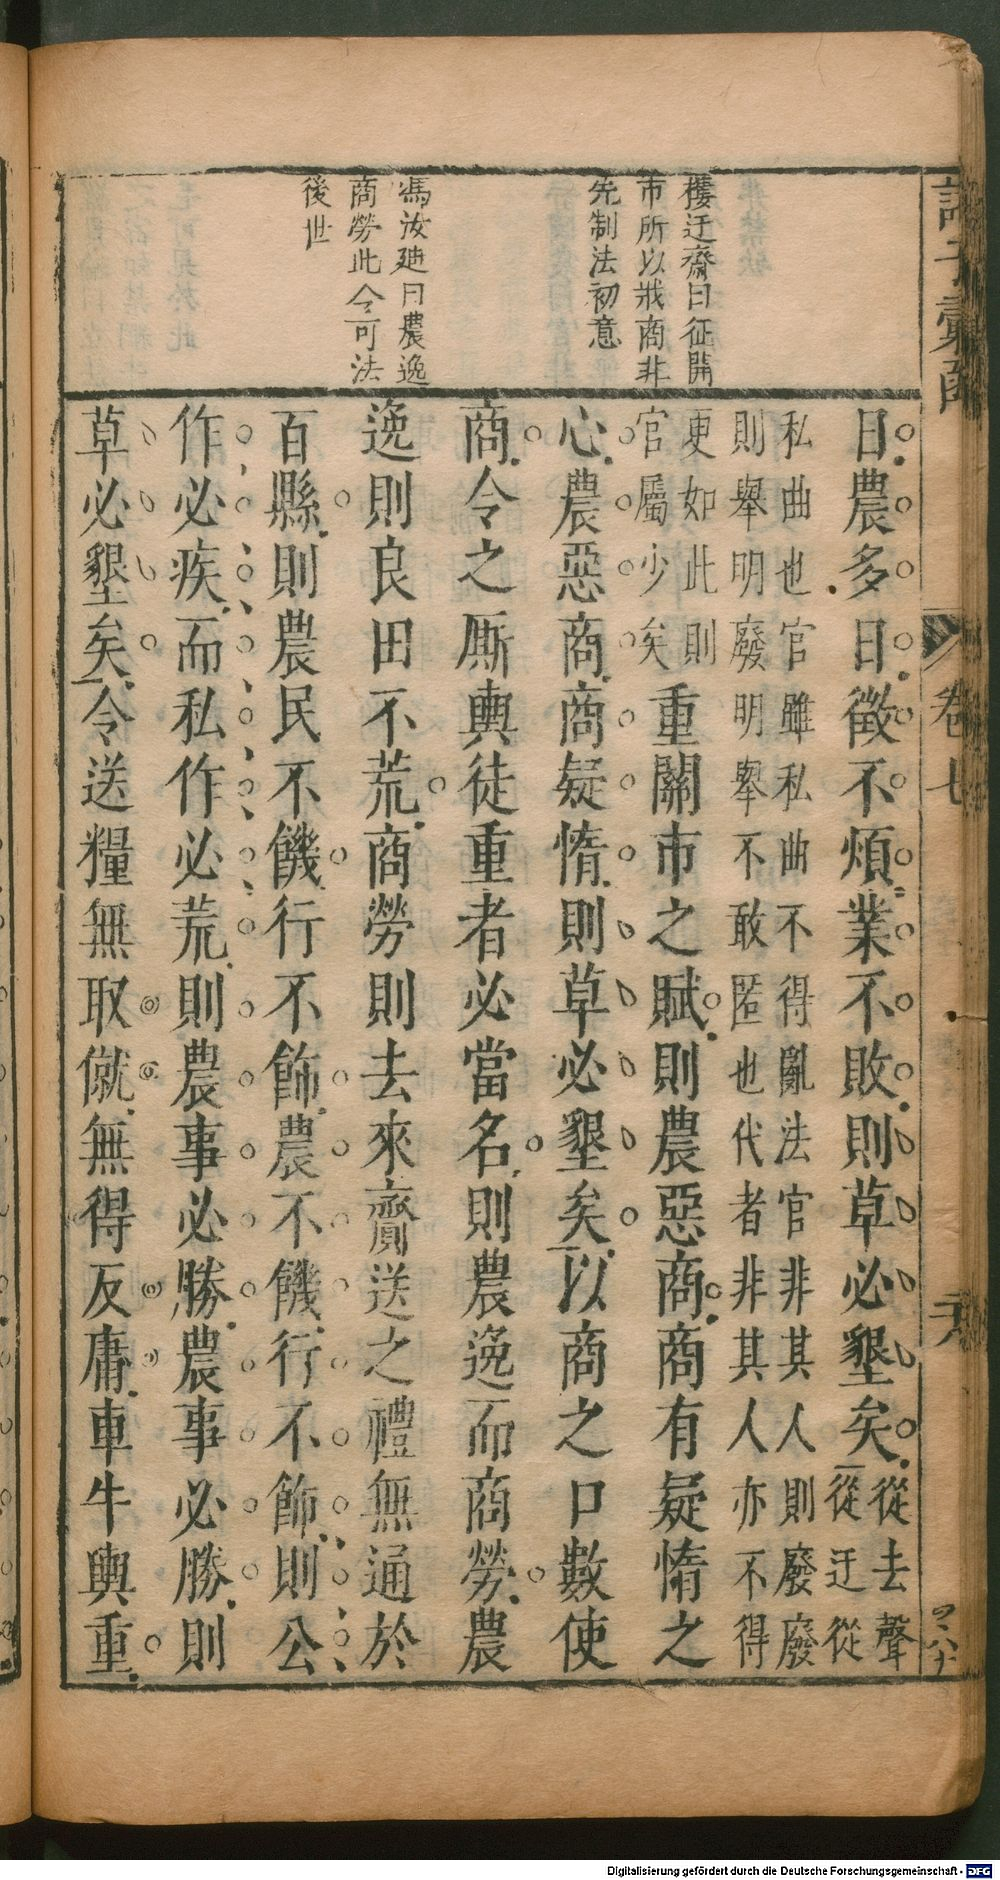 樓迂齋曰征開
市所以戒商非
先制法初意
馮汝廸曰農逸
商勞此令可法
後世
日農多日徵不煩業不敗則草必墾矣從去聲
從迂從
私曲也官雖私曲不得亂法官非其人則廢廢
則舉明廢明舉不敢匿也代者非其人亦不得
更如此則
官屬少矣
重關市之賦則農惡商商有疑惰之
心農惡商商疑惰則草必墾矣以商之口數使
商令之厮輿徒重者必當名則農逸而商勞農
逸則良田不荒商勞則去來齎送之禮無通於
百縣則農民不饑行不飾農不饑行不飾則公
作必疾而私作必荒則農事必勝農事必勝則
草必墾矣令送糧無取僦無得反庸車牛輿重
卷七
Digitalisierung gefördert durch die Deutsche Forschungsgemeinschaft - DFG